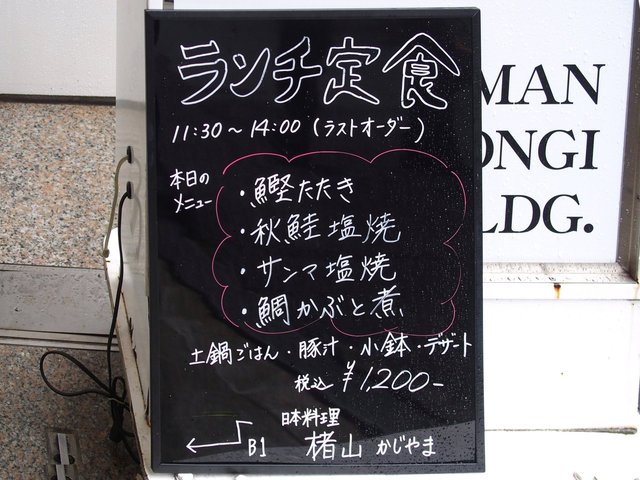 ランチ定食
11:30～14:00(ラストオーダー)
本日の
メニュー
・鰹たたき
・秋鮭塩焼
・サンマ塩焼
・鯛かぶと煮
土鍋ごはん・豚汁・小鉢・デザート
税込 ¥1,200-
日本料理
B1 楮山 かじやま
MAN
ONGI
LDG.